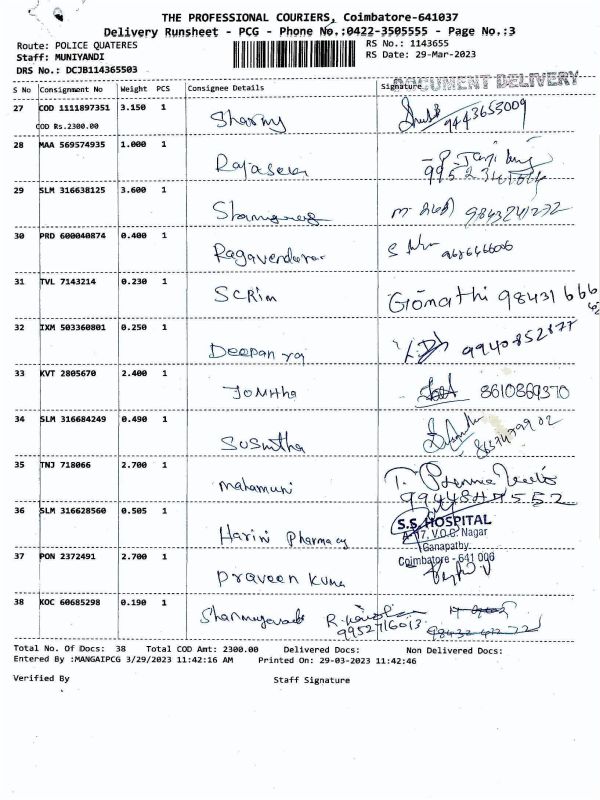 THE PROFESSIONAL COURIERS, Coimbatore-641037
Delivery Runsheet - PCG - Phone No.:0422-3505555 - Page No.:3
Route: POLICE QUATERES
RS No.: 1143655
Staff: MUNIYANDI
RS Date: 29-Mar-2023
DRS No.: DCJB114365503
DOCUMENT DELIVERY
S No Consignment No Weight PCS Consignee Details Signature
27 COD 1111897351 3.150 1 Sharmy 9443655009
COD Rs.2300.00
28 MAA 569574935 1.000 1 Rajaseker
29 SLM 316638125 3.600 1 9843241272
30 PRD 600040874 0.400 1 Ragavendaran
31 TVL 7143214 0.230 1 SCRim Gomathi 98431 666
32 IXM 503360801 0.250 1 Deepan raj 9940852877
33 KVT 2805670 2.400 1 8610869370
34 SLM 316684249 0.490 1 Susmitha
35 TNJ 718066 2.700 1 mahamuni
36 SLM 316628560 0.505 1 Harini Pharmacy
S.S. HOSPITAL
A-17, V.O.C. Nagar
Ganapathy
Coimbatore - 641 006
37 PON 2372491 2.700 1 Praveen Kuma
38 KOC 60685298 0.190 1 9952716013
Total No. Of Docs: 38 Total COD Amt: 2300.00 Delivered Docs: Non Delivered Docs:
Entered By :MANGAIPCG 3/29/2023 11:42:16 AM Printed On: 29-03-2023 11:42:46
Verified By Staff Signature